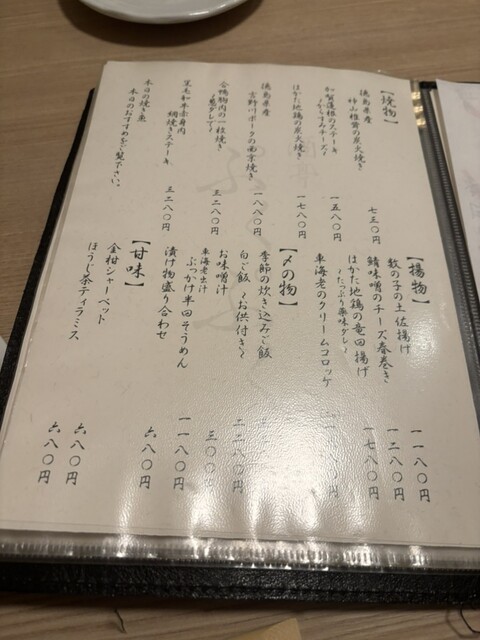 【焼物】
徳島県産
神山椎茸の炭火焼き
七三〇円
加賀蓮根のステーキ
～からすみチーズ～
一五八〇円
はかた地鶏の炭火焼き
一七八〇円
徳島県産
吉野川ポークの南京焼き
一八八〇円
合鴨胸肉の一枚焼き
～葱ダレ～
三二八〇円
黒毛和牛赤身肉
網焼きステーキ
三二八〇円
本日の焼き魚
本日のおすすめをご覧下さい。
【揚物】
数の子の土佐揚げ
一一八〇円
鯖味噌のチーズ春巻き
一二八〇円
はかた地鶏の竜田揚げ
～たっぷり薬味ダレ～
一七八〇円
車海老のクリームコロッケ
【〆の物】
季節の炊き込みご飯
白ご飯 ～お供付き～
お味噌汁
三〇〇円
車海老出汁
ぶっかけ半田そうめん
一一八〇円
漬け物盛り合わせ
六八〇円
【甘味】
金柑シャーベット
六八〇円
ほうじ茶ティラミス
六八〇円